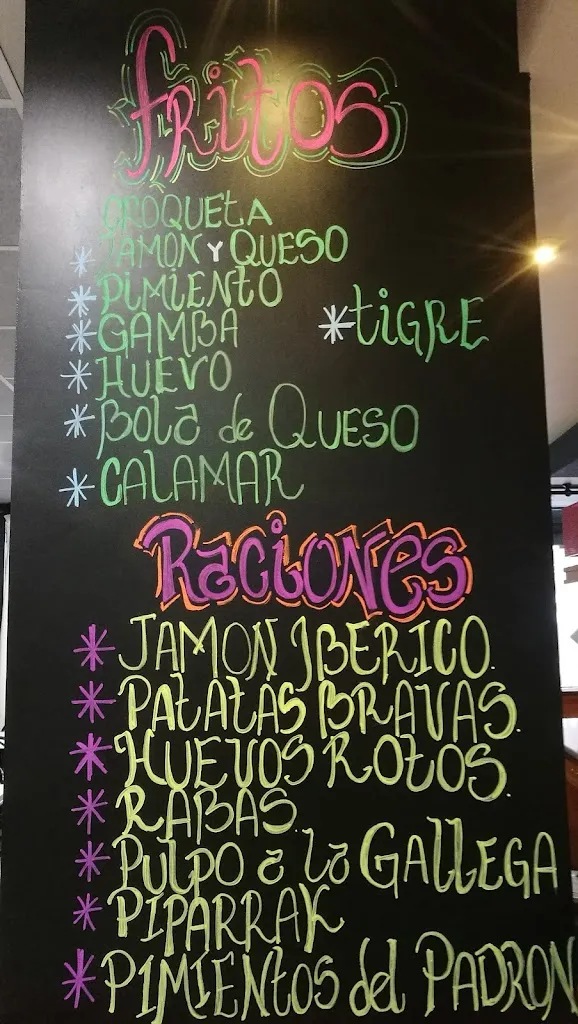 fRitos
CROQUETA
JAMON Y QUESO
PIMIENTO
GAMBA
*tiGRE
HUEVO
Bola de QUESO
CALAMAR
RaCiONes
*JAMON IBERICO.
*PATATAS BRAVAS.
*HUEVOS ROTOS.
*RABAS.
*PULPO a la GALLEGA
*PIPARRAK
*PIMIENtos del PADRON